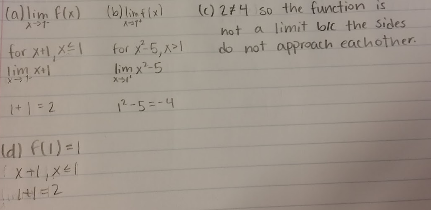 (a) lim f(x)
x→1⁻
for x+1, x≤1
lim x+1
x→1⁻
1+1=2
(b) lim f(x)
x→1⁺
for x²-5, x>1
lim x²-5
x→1⁺
1²-5=-4
(c) 2≠4 so the function is
not a limit b/c the sides
do not approach eachother.
(d) f(1)=1
x+1, x≤1
1+1=2